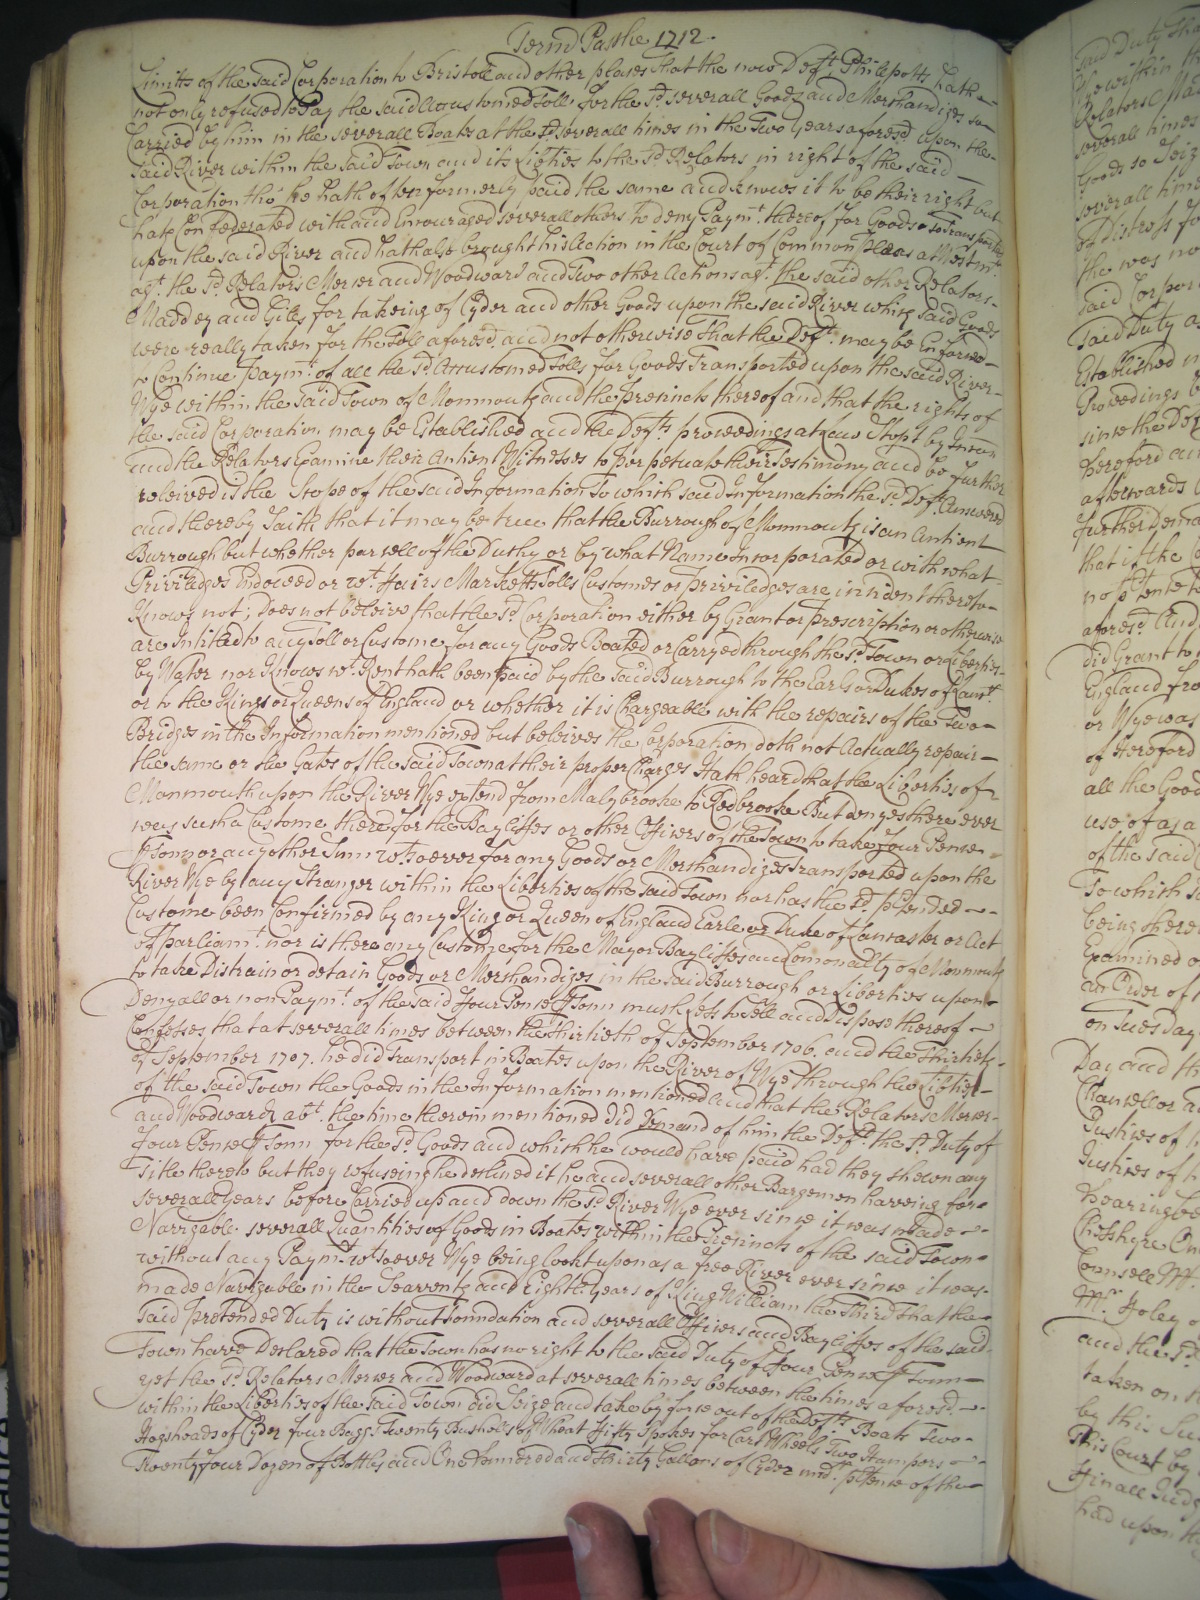 Termo Pasche 1712.
Limitts of the said Corporation to Bristoll and other places That the now Deft. Philpotts hath
not only refused to Pay the said Accustomed Toll for the sd severall Goods and Merchandizes so
Carried by him in the severall Boats at the sd severall times in the Two Years aforesd. upon the
said River within the said Town and its Libties to the sd Relators in right of the said
Corporation tho' he hath often formerly paid the same and knows it to be their right but
hath Confederated with and Encouraged severall others to deny Paymt. thereof for Goods so Transported
upon the said River and hath also brought his Action in the Court of Common pleas at Westmr.
agt. the sd Relators Mercer and Woodward and Two other Actions agt. the said other Relators
Maddey and Gills for takeing of Cyder and other Goods upon the said River which said Goods
were really taken for the Toll aforesd. and not otherwise That the Deft. may be Enforced
to Continue Paymt. of all the sd Accustomed Tolls for Goods Transported upon the said River
Wye within the said Town of Monmouth and the precincts thereof and that the rights of
the said Corporation may be Established and the Defts. proceedings at Law Stopt by Injuncn
and the Relators Examine their Antient Witnesses to perpetuate their Testimony and be further
releived is the Scope of the said Information To which said Information the sd Deft. Answered
and thereby Saith that it may be true that the Burrough of Monmouth is an Antient
Burrough but whether parcell of the Duchy or by what Name Incorporated or with what
Priviledges Endowed or wt. Fairs Marketts Tolls Customes or priviledges are incident thereto
Knows not; Does not beleive that the sd Corporation either by Grant or prescription or otherwise
are Intitled to any Toll or Custome for any Goods Boated or Carryed through the sd Town or Liberties
by Water nor Knows wt. Rent hath been paid by the said Burrough to the Earls or Dukes of Lancr.
or to the Kings or Queens of England or whether it is Chargeable with the repairs of the Two
Bridges in the Information mentioned but beleives the Corporation doth not Actually repair
the same or the Gates of the said Town at their proper Charges Hath heard that the Liberties of
Monmouth upon the River Wye extend from Malybrooke to Redbrooke But denyes there ever
was such a Custome there for the Bayliffes or other Officers of the Town to take four Pence
p Tonn or any other Sum wtsoever for any Goods or Merchandizes Transported upon the
River Wye by any Stranger within the Liberties of the said Town nor has the sd. ptended
Custome been Confirmed by any King or Queen of England Earle or Duke of Lancaster or Act
of Parliamt. nor is there any Custome for the Mayor Bayliffes and Comonalty of Monmouth
to take Distrain or detain Goods or Merchandizes in the said Burrough or Liberties upon
Denyall or non Paymt. of the said four Pence p Tonn much less to sell and Dispose thereof
Confesses that at severall times between the Thirtieth of September 1706. and the Thirtieth
of September 1707. he did Transport in Boates upon the River of Wye through the Libties
of the said Town the Goods in the Information mentioned and that the Relators Mercer
and Woodward abt. the time therein mentioned did Demand of him the Deft. the sd. Duty of
four Pence p Tonn for the sd. Goods and which he would have paid had they shewn any
Title thereto but they refuseing he declined it he and severall other Bargemen haveing for
severall Years before Carried up and down the sd River Wye ever since it was made
Navigable severall Quantities of Goods in Boates within the Precincts of the said Town
without any Paymt. wtsoever Wye being lookt upon as a free River ever since it was
made Navigable in the Seaventh and Eighth Years of King William the Third That the
said pretended Duty is without Foundation and severall Officers and Bayliffes of the said
Town have Declared that the Town has no right to the said Duty of four Pence p Tonn
yet the sd. Relators Mercer and Woodward at severall times between the times aforesd.
within the Liberties of the said Town did Seize and take by force out of the Defts. Boats Two
Hogsheads of Cyder four baggs Twenty Bushells of Wheat Fifty Spokes for Cart Wheels Two Hampers
Twenty four Dozen of Bottles and One hundred and thirty Gallons of Cyder undr. ptence of the